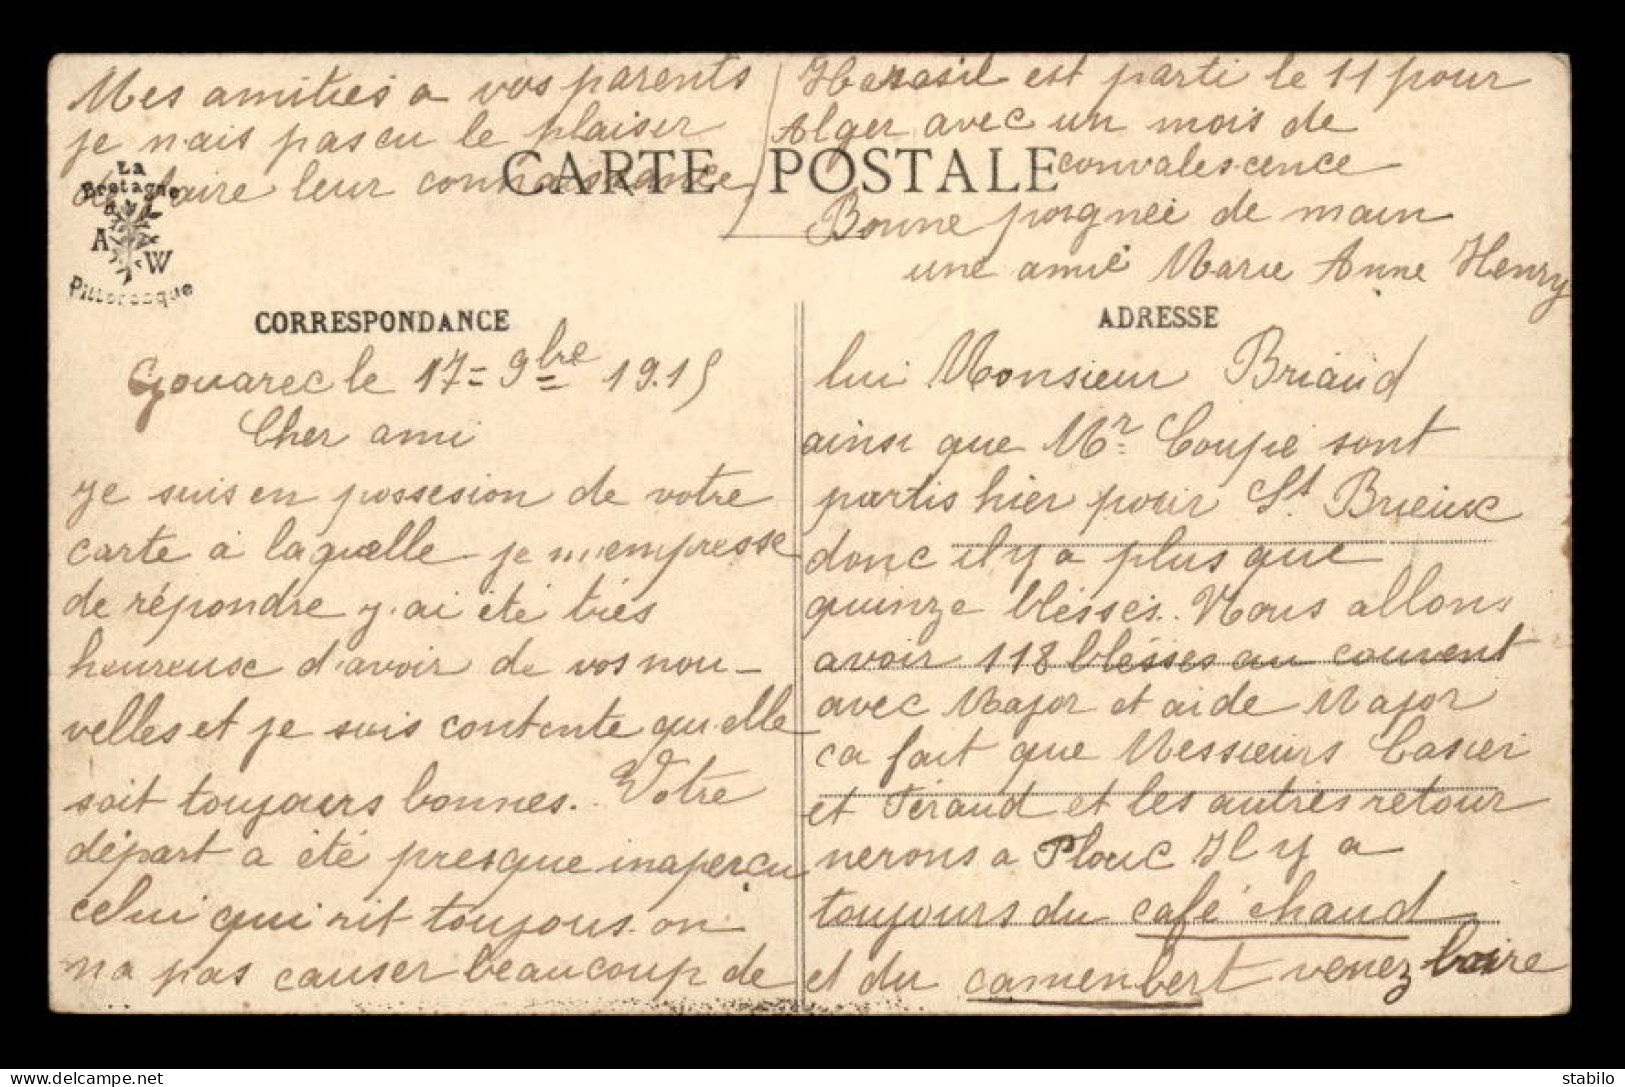 Mes amitiés a vos parents
je n'ais pas eu le plaisir
de faire leur connaissance
Harasil est parti le 11 pour
Alger avec un mois de
convalescence
Bonne poignée de main
une amie Marie Anne Henry
La
Bretagne
A W
Pittoresque
CARTE POSTALE
CORRESPONDANCE
Gouarec le 17 = 9bre 1915
Cher ami
Je suis en possesion de votre
carte à laquelle je m'empresse
de répondre j'ai été très
heureuse d'avoir de vos nou-
velles et je suis contente qu'elle
soit toujours bonnes. Votre
départ a été presque inaperçu
celui qui rit toujous. on
na pas causer beaucoup de
ADRESSE
lui Monsieur Briaud
ainsi que Mr Coupé sont
partis hier pour St Brieuc
donc il y a plus que
quinze bléssés. Nous allons
avoir 118 bléssés au couvent
avec Major et aide Major
ca fait que Messieurs Casier
et Féraud et les autres retour
nerons a Plouc Il y a
toujours du café chaud
et du camenbert venez boire